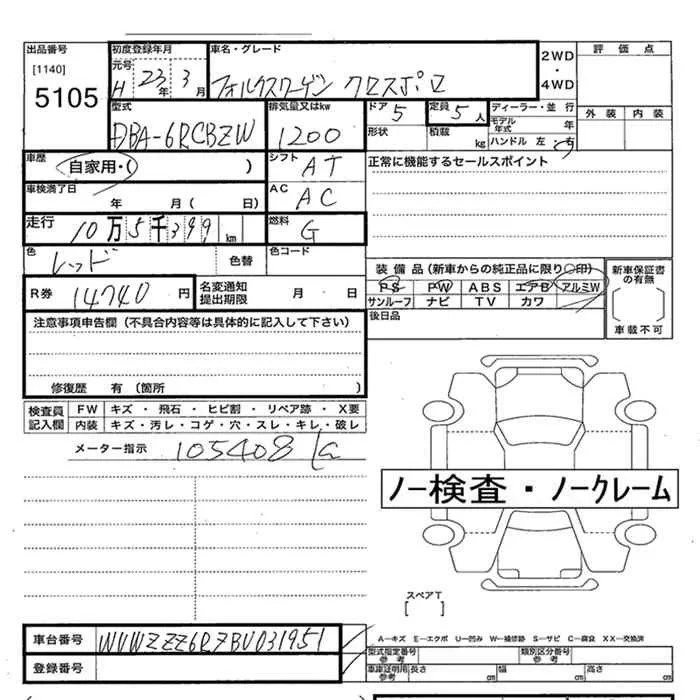 出品番号 初度登録年月 車名・グレード 2WD・4WD 評価点
[1140] 元号 H 23年 3月 フォルクスワーゲン クロスポロ
5105
型式 排気量又はkw ドア 5 定員 5人 ディーラー・並行 外装 内装
DBA-6RCBZW 1200 形状 積載 kg モデル年式 年
ハンドル 左 右
車歴 自家用・( ) シフト AT 正常に機能するセールスポイント
車検満了日 年 月( 日) AC AC
走行 10万5千399km 燃料 G
色 レッド 色替 色コード
装備品(新車からの純正品に限り○印) 新車保証書の有無
R券 14740円 名変通知提出期限 月 日
PS PW ABS エアB アルミW
サンルーフ ナビ TV カワ
車載不可
注意事項申告欄(不具合内容等は具体的に記入して下さい) 後日品
修復歴 有(箇所 )
検査員記入欄 FW キズ・飛石・ヒビ割・リペア跡・X要
内装 キズ・汚レ・コゲ・穴・スレ・キレ・破レ
メーター指示 105408
ノー検査・ノークレーム
スペアT
[ ]
A―キズ E―エクボ U―凹み W―補修跡 S―サビ C―腐食 XX―交換済
車台番号 WVWZZZ6RZBU031951 型式指定番号 参考 類別区分番号 参考
登録番号 車庫証明用 参考 長さ cm 幅 cm 高さ cm